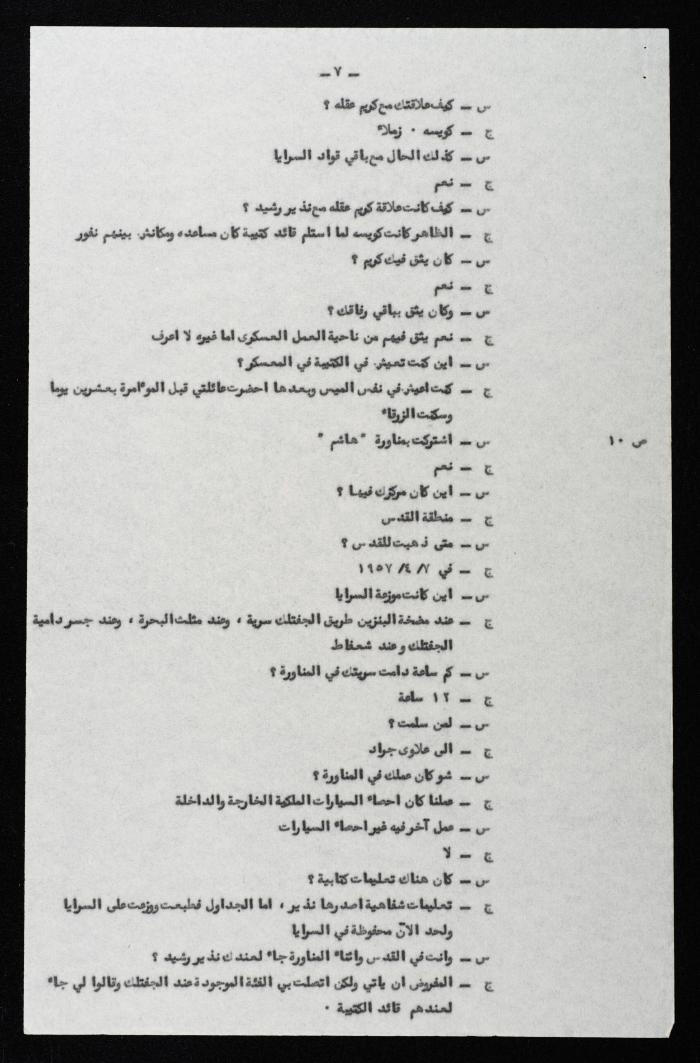 – ٧ –
س – كيف علاقتك مع كريم عقله ؟
ج – كويسه . زملاء
س – كذلك الحال مع باقي قواد السرايا
ج – نعم
س – كيف كانت علاقة كريم عقله مع نذير رشيد ؟
ج – الظاهر كانت كويسه لما استلم قائد كتيبة كان مساعده ومكانش بينهم نفور
س – كان يثق فيك كريم ؟
ج – نعم
س – وكان يثق بباقي رفاقك ؟
ج – نعم يثق فيهم من ناحية العمل العسكرى اما غيره لا اعرف
س – اين كنت تعيش في الكتيبة في المعسكر ؟
ج – كنت اعيش في نفس الميس وبعدها احضرت عائلتي قبل الموءامرة بعشرين يوما
وسكنت الزرقاء
ص ١٠ س – اشتركت بمناورة " هاشم "
ج – نعم
س – اين كان مركزك فيها ؟
ج – منطقة القدس
س – متى ذهبت للقدس ؟
ج – في ٧ /٤ /١٩٥٧
س – اين كانت موزعة السرايا
ج – عند مضخة البنزين طريق الجفتلك سرية ، وعند مثلث البحرة ، وعند جسر دامية
الجفتلك وعند شعفاط
س – كم ساعة دامت سريتك في المناورة ؟
ج – ١٢ ساعة
س – لمن سلمت ؟
ج – الى علاوى جراد
س – شو كان عملك في المناورة ؟
ج – عملنا كان احصاء السيارات الملكية الخارجة والداخلة
س – عمل آخر فيه غير احصاء السيارات
ج – لا
س – كان هناك تعليمات كتابية ؟
ج – تعليمات شفاهية اصدرها نذير ، اما الجداول فطبعت ووزعت على السرايا
ولحد الآن محفوظة في السرايا
س – وانت في القدس واثناء المناورة جاء لعندك نذير رشيد ؟
ج – المفروض ان ياتي ولكن اتصلت بي الفئة الموجودة عند الجفتلك وقالوا لي جاء
لعندهم قائد الكتيبة .